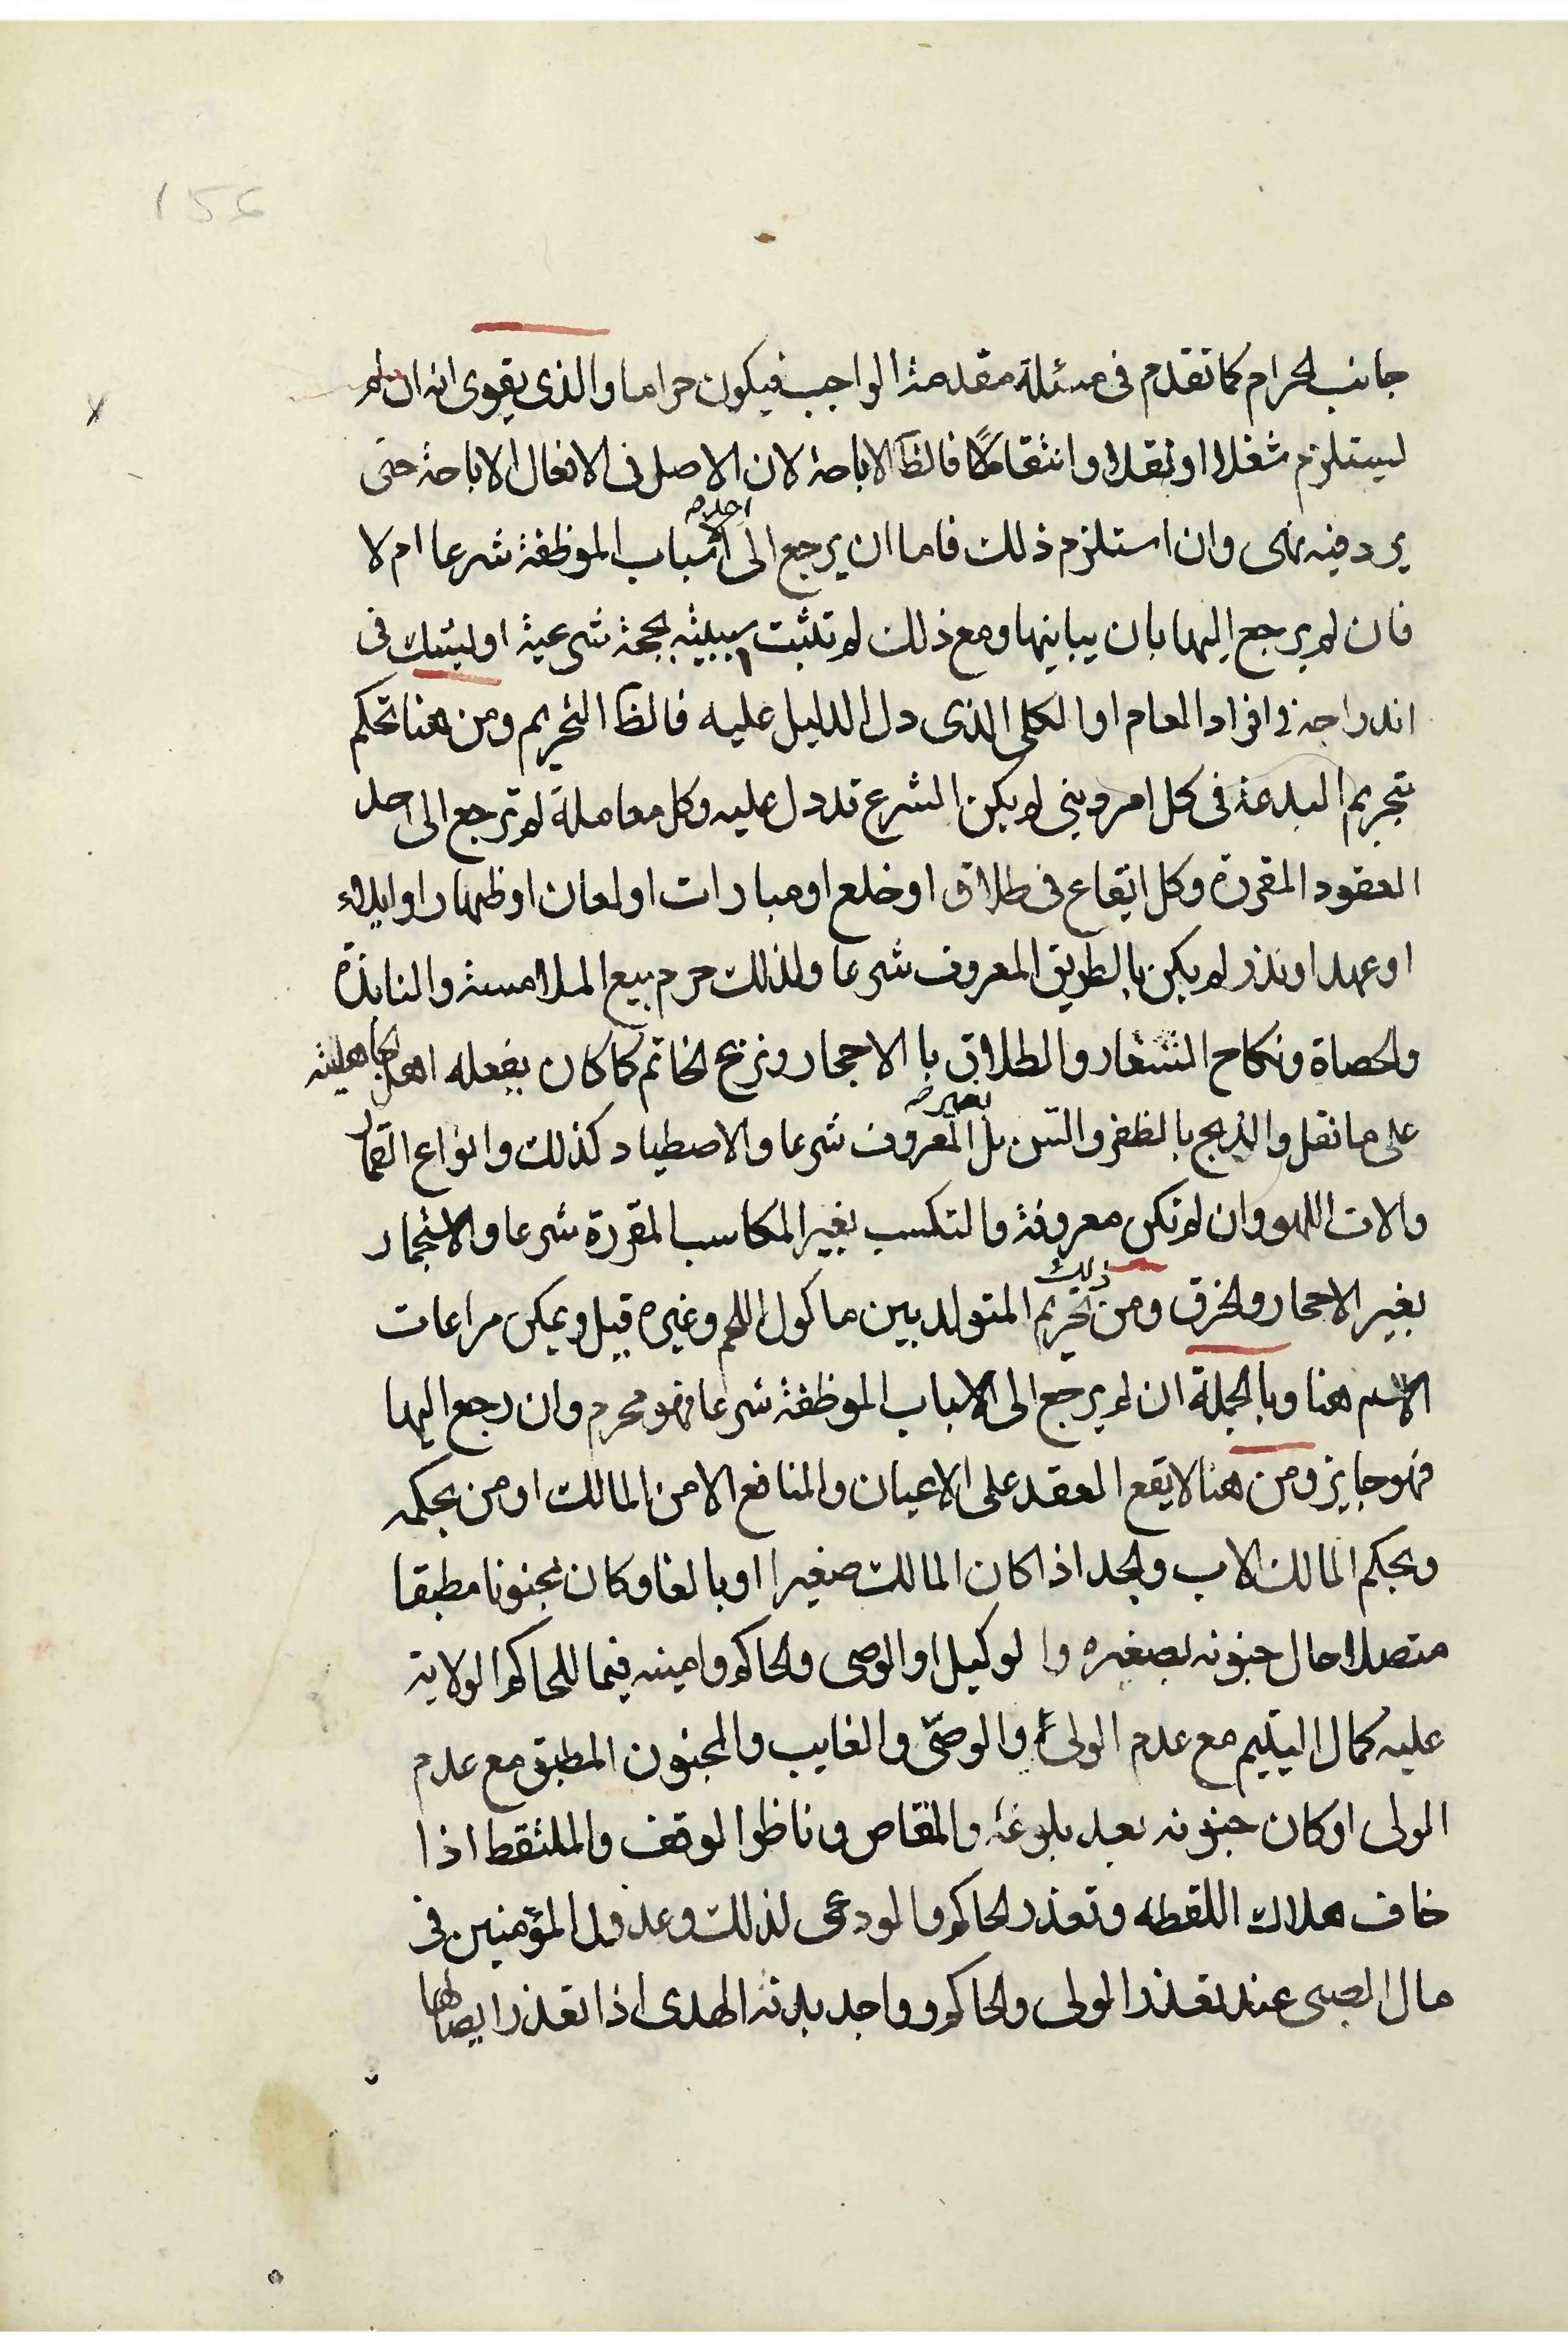 156
جانب الحرام كما تقدم فى مسئلة مقدمة الواجب فيكون حراما والذى يقوى انه ان لم
يستلزم شغلا او نقلا وانتقالا فالظ الاباحة لان الاصل فى الافعال الاباحة حتى
يرد فيه نهى وان استلزم ذلك فاما ان يرجع الى احد الاسباب الموظفة شرعا ام لا
فان لم يرجع اليها بان يباينها ومع ذلك لم تثبت سببيته بحجة شرعية او ليشك فى
اندراجه فى افراد العام او الكلى الذى دل الدليل عليه فالظ التحريم ومن هنا تحكم
بتحريم البدعة فى كل امر دينى لم يكن الشرع قد دل عليه وكل معاملة لم ترجع الى احد
العقود المقررة وكل ايقاع فى طلاق او خلع او مبارات او لعان او ظهار او ايلاء
او عهد او نذر لم يكن بالطريق المعروف شرعا ولذلك حرم بيع الملامسة والنابذة
والحصاة ونكاح الشغار والطلاق با الاحجار ونزع الخاتم كما كان يفعله اهل الجاهلية
على ما نقل والذبح بالظفر والسن بل بغير المعروف شرعا والاصطياد كذلك وانواع القمار
والات اللهو وان لم تكن معروفة والتكسب بغير المكاسب المقررة شرعا والاستجمار
بغير الاحجار والخرق ومن ذلك تحريم المتولد بين ماكول اللحم وغيره قيل ويمكن مراعات
الاسم هنا وبالجملة ان لم يرجع الى الاسباب الموظفة شرعا فهو محرم وان رجع اليها
فهو جايز ومن هنا لا يقع العقد على الاعيان والمنافع الا من المالك او من بحكمه
وبحكم المالك الاب والجد اذا كان المالك صغيرا او بالغا وكان مجنونا مطبقا
متصلا حال جنونه بصغره وا لوكيل او الوصى والحاكم وامينه فيما للحاكم الولاية
عليه كمال اليتيم مع عدم الولى والوصىّ والغايب والمجنون المطبق مع عدم
الولى او كان جنونه بعد بلوغه والمقاص وناظر الوقف والملتقط اذا
خاف هلاك اللقطه وتعذر الحاكم والودعى لذلك وعدول المؤمنين فى
مال الصبى عند تعذر الولى والحاكم وواجد بدنة الهدى اذا تعذر ايصالها